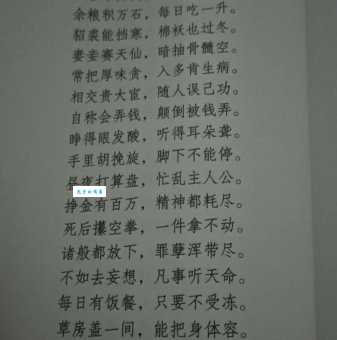 余粮积万石，每日吃一升。
貂裘能挡寒，棉袄也过冬。
妻妾赛天仙，暗抽骨髓空。
常把厚味贪，入多肯生病。
相交贵大宦，随人误己功。
自称会弄钱，颠倒被钱弄。
睁得眼发酸，听得耳朵聋。
手里胡挽旋，脚下不能停。
昼夜打算盘，忙乱主人公。
挣金有百万，精神都耗尽。
死后攥空拳，一件拿不动。
诸般都放下，罪孽浑带尽。
不如去妄想，凡事听天命。
每日有饭餐，只要不受冻。
草房盖一间，能把身体容。